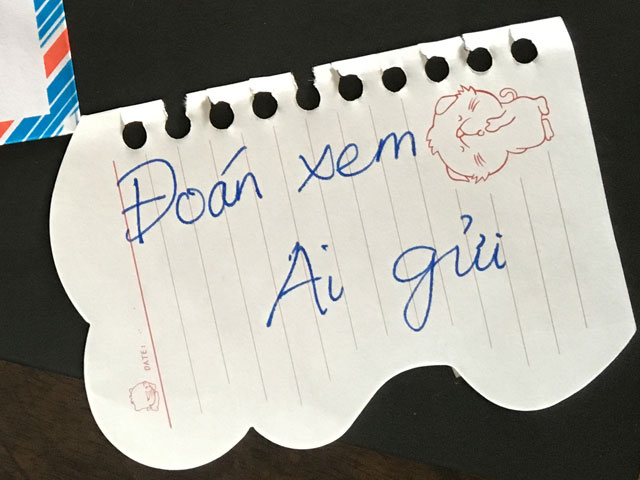 Đoán xem
Ai gửi
DATE: